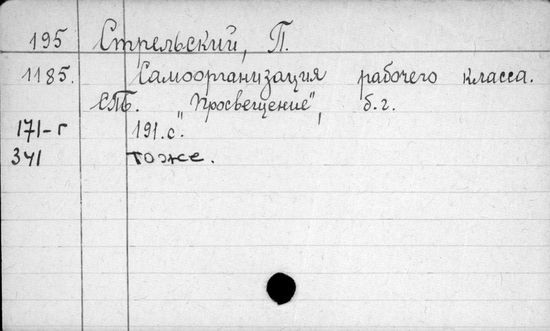 195 Стрельский, П.
1185. Самоорганизация рабочего класса.
СПБ. "Просвещение", б.г.
171-г 191.с.
341 тоже.